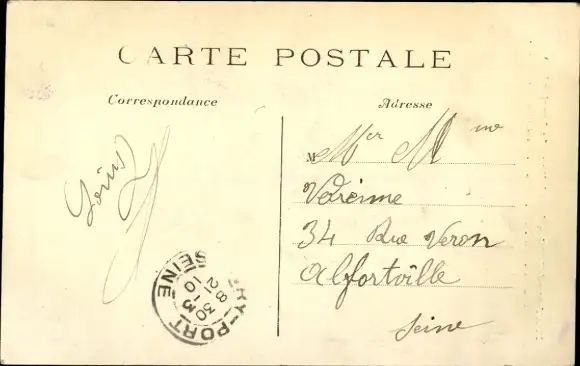 CARTE POSTALE
Correspondance
Adresse
Louis
M Mer Mme
34 Rue Veron
Alfortville
Seine
RY-PORT
SEINE
8 30
2 10